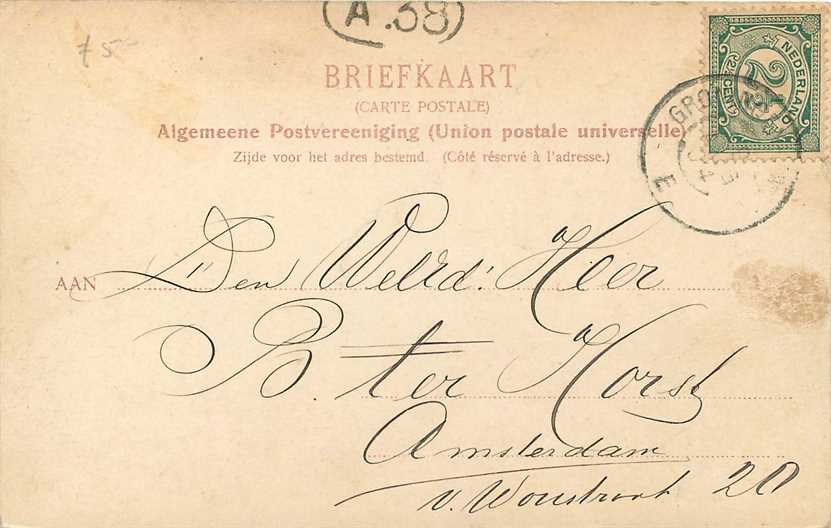 A.38
75-
NEDERLAND
2½ CENT
BRIEFKAART
(CARTE POSTALE)
Algemeene Postvereeniging (Union postale universelle)
Zijde voor het adres bestemd. (Côté réservé à l'adresse.)
AAN Den WelEd: Heer
B. ter Horst
Amsterdam
v. Woustraat 20